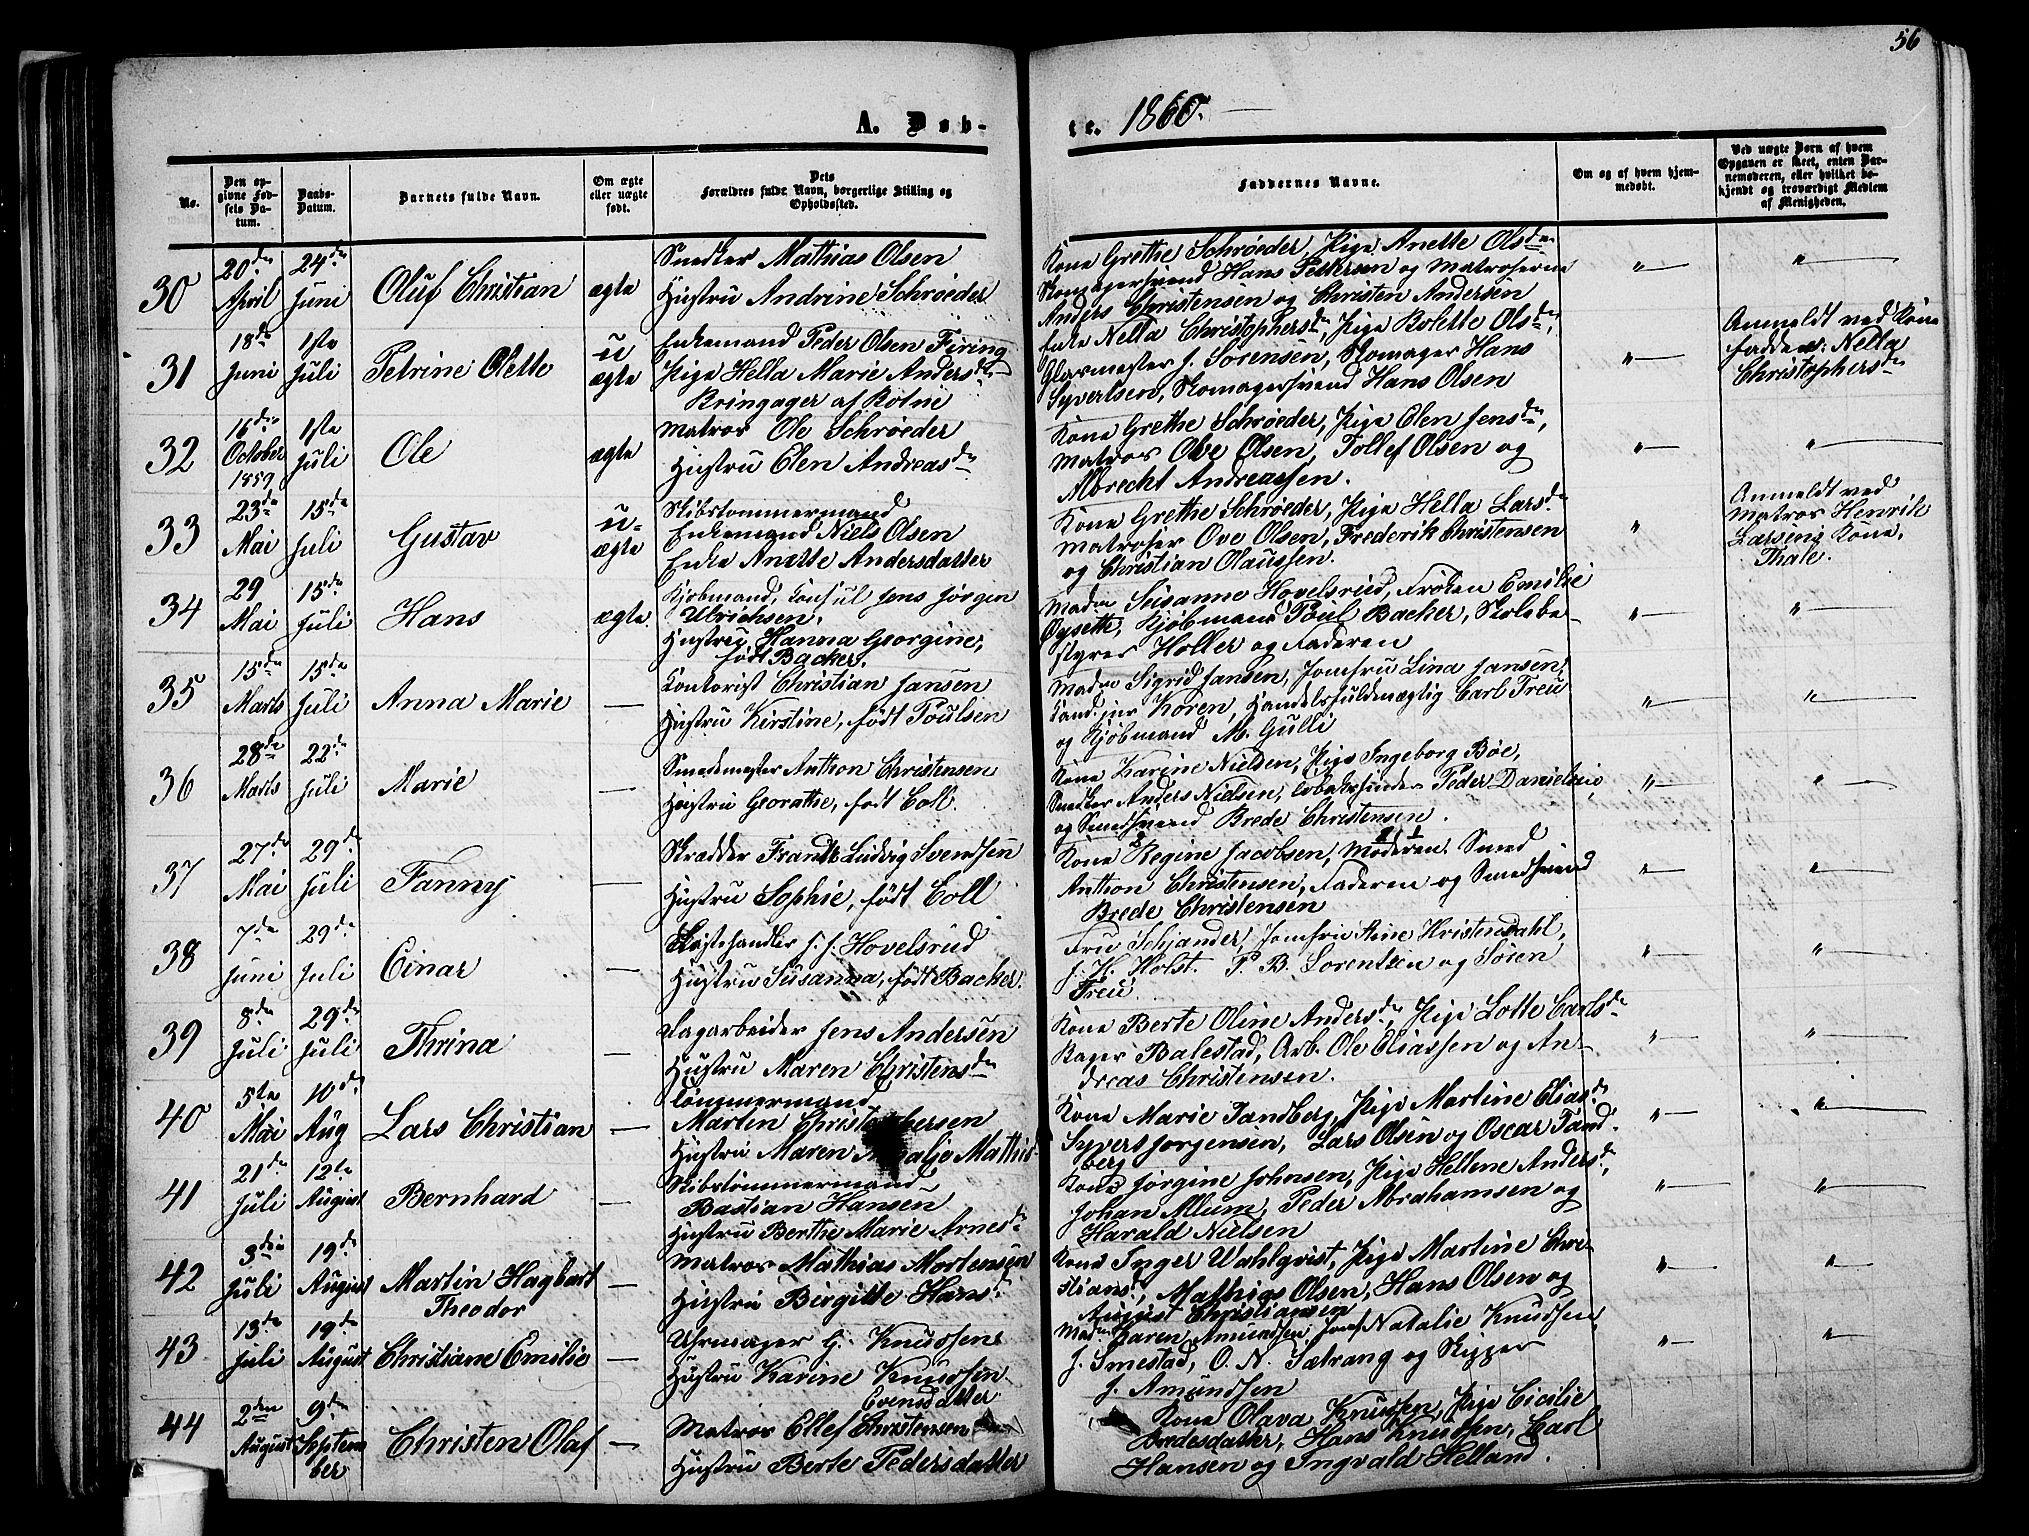 56
A. Døb-
te. 1860.
No.
Den op-
givne Fød-
sels Da-
tum.
Daabs-
Datum.
Barnets fulde Navn.
Om ægte
eller uægte
født.
Dets
Forældres fulde Navn, borgerlige Stilling og
Opholdssted.
Faddernes Navne.
Om og af hvem hjem-
medøbt.
Ved uægte Børn af hvem
Opgaven er skeet, enten Bar-
nemoderen, eller hvilket be-
kjendt og troværdigt Medlem
af Menigheden.
30
20de
April
24de
Juni
Oluf Christian
ægte
Snedker Mathias Olsen
Hustru Andrine Schrøeder
Kone Grethe Schrøeder, Pige Anette Olsdr
Skomagersvend Hans Pettersen og Matroserne
Anders Christensen og Christen Andersen
31
18de
Juni
1ste
Juli
Petrine Olette
u
ægte
Enkemand Peder Olsen Firing
Pige Hella Marie Andersdr
Bringager af Botne
Enke Nella Christophersdr, Pige Bolette Olsdr,
Glarmester J. Sørensen, Skomager Hans
Syvertsen, Skomagersvend Hans Olsen
Anmeldt ved Kone
fadder: Nella
Christophersdr
32
16de
October
1859
1ste
Juli
Ole
ægte
Matros Ole Schrøeder
Hustru Elen Andreasdr
Kone Grethe Schrøeder, Pige Elen Jensdr,
Matros Ove Olsen, Tollef Olsen og
Albrecht Andreassen.
33
23de
Mai
15de
Juli
Gustav
u-
ægte
Skibstømmermand
Enkemand Niels Olsen
Enke Anette Andersdatter
Kone Grethe Schrøeder, Pige Hella Larsdr
Matroser Ove Olsen, Frederik Christensen
og Christian Olaussen.
Anmeldt ved
Matros Henrik
Larsens Kone,
Thale.
34
29
Mai
15de
Juli
Hans
ægte
Kjøbmand, Konsul Jens Jørgen
Ulrichsen,
Hustru Hanna Georgine,
født Backer.
Madm Susanne Hovelsrud, Frøken Emilie
Oysette, Kjøbmand Poul Backer, Skolebe-
styrer Holler og Faderen
35
15de
Marts
15de
Juli
Anna Marie
Kontorist Christian Jansen
Hustru Kirstine, født Poulsen
Madm Sigrid Jansen, Jomfru Lina Jansen,
Kand. jur Koren, Handelsfuldmægtig Carl Treu
og Kjøbmand M. Gulli
36
28de
Marts
22de
Juli
Marie
Smedemester Anthon Christensen
Hustru Georathe, født Coll.
Kone Karine Nielsen, Pige Ingeborg Bøe,
Snedker Anders Nielsen, Peder Danielsen
og Smedsvend Brede Christensen.
37
27de
Mai
29de
Juli
Fanny
Skrædder Frandts Ludvig Svendsen
Hustru Sophie, født Coll
Kone Regine Jacobsen, Moderen. Smed
Anthon Christensen, Faderen og Smedsvend
Brede Christensen
38
7de
Juni
29de
Juli
Einar
Høstehandler J. J. Hovelsrud
Hustru Susanna, født Backer.
Fru Schjander, Jomfru Stine Kristensdahl,
J. H. Holst. P. B. Lorentzen og Søren
Treu.
39
8de
Juli
29de
Juli
Thrina
Sagarbeider Jens Andersen
Hustru Maren Christensdr
Kone Berte Oline Andersdr, Pige Lotte Carlsdr
Bager Balestad, Arb. Ole Eliassen og An-
dreas Christensen.
40
5te
Mai
10de
Aug
Lars Christian
Tømmermand
Marten Christophersen
Hustru Maren Mathis
Kone Marie Tandberg, Pige Martine Eliasdr
Syvert Jørgensen, Lars Olsen og Oscar Tand-
berg
41
21de
Juli
12te
August
Bernhard
Skibstømmermand
Bastian Hansen
Hustru Berthe Marie Arnesdr
Kone Jørgine Johnsen, Pige Hellene Andersdr,
Johan Allum, Peder Abrahamsen og
Harald Nielsen
42
3die
Juli
19de
August
Martin Hagbart
Theodor
Matros Mathias Mortensen
Hustru Birgitte Hansdr
Kone Inger Wahlqvist, Pige Martine Chri-
stiansdr, Mathias Olsen, Hans Olsen og
August Christiansen
43
13de
Juli
19de
August
Christiane Emilie
Uhrmager G. Knudsen
Hustru Karine Knudsen
Evensdatter
Madm Karen Amundsen, Jomf Natalie Knudsen,
J. Smestad, O. N. Sætrang og Skipper
J. Amundsen
44
2den
August
9de
Septem
ber
Christen Olaf
Matros Ellef Christensen
Hustru Berte Pedersdatter
Kone Olava Knudsen, Pige Cicilie
Bredesdatter, Hans Knudsen, Carl
Hansen og Ingvald Helland.